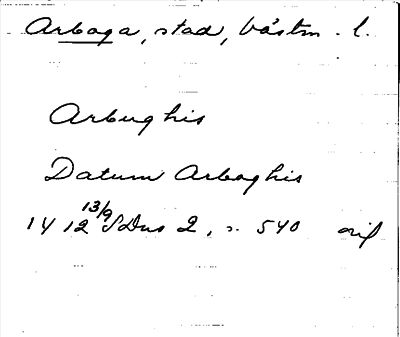 Arboga, stad, västm. l.
Arbughis
Datum Arboghis
1412 13/9 SDns 2, s. 540 orig